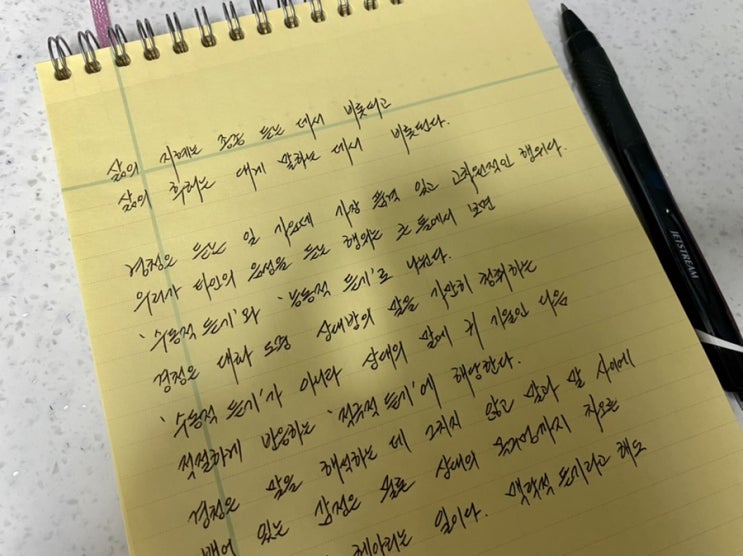 삶의 지혜는 종종 듣는 데서 비롯되고
삶의 후회는 대게 말하는 데서 비롯된다.
경청은 듣는 일 가운데 가장 품격 있고 고차원적인 행위다.
우리가 타인의 음성을 듣는 행위는 큰 틀에서 보면
'수동적 듣기'와 '능동적 듣기'로 나뉜다.
경청은 대화 도중 상대방의 말을 가만히 청취하는
'수동적 듣기'가 아니라 상대의 말에 귀 기울인 다음
적절하게 반응하는 '적극적 듣기'에 해당한다.
경청은 말을 해석하는 데 그치지 않고 말과 말 사이에
배어 있는 감정은 물론 상대의 까지 치오른
헤아리는 일이다. 맥락적 듣기라고 해도
JETSTREAM